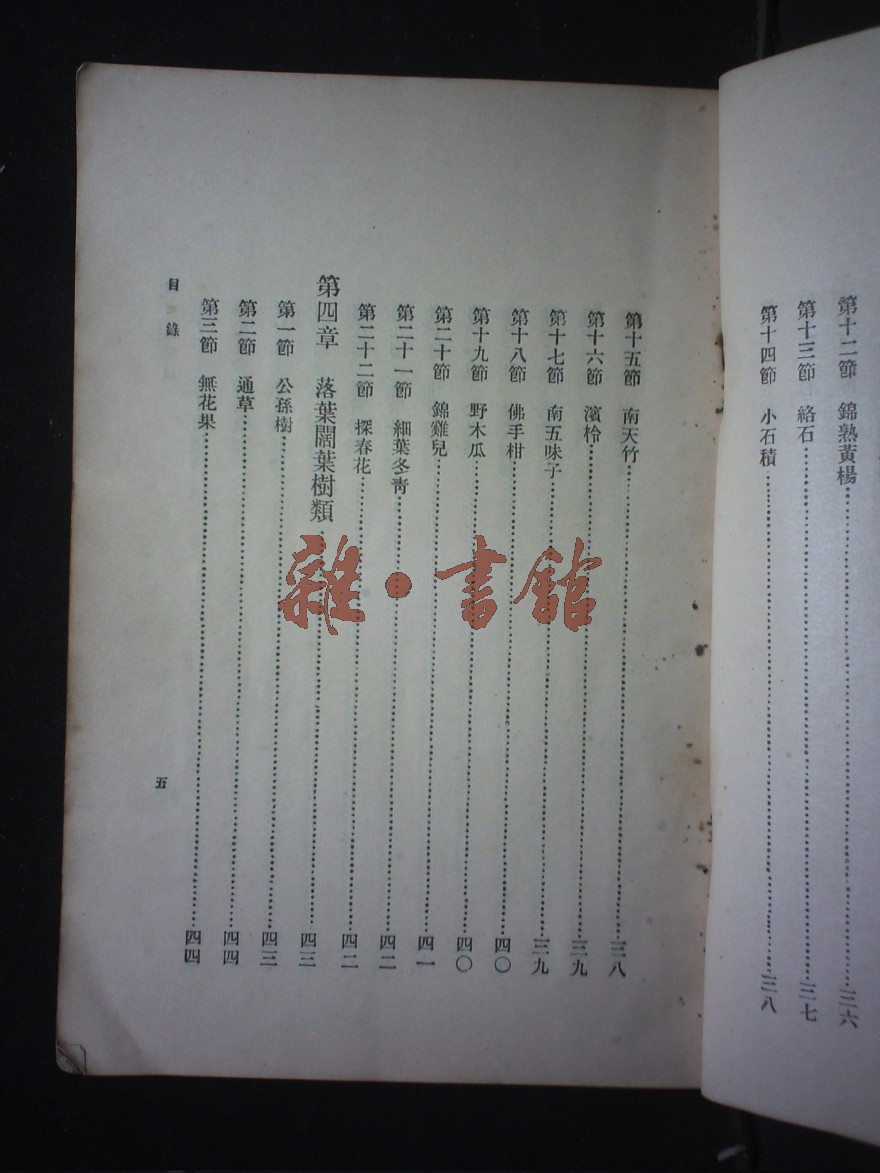 第十二節　錦熟黃楊……三六
第十三節　絡石……三七
第十四節　小石積……三八
第十五節　南天竹……三八
第十六節　濱柃……三九
第十七節　南五味子……三九
第十八節　佛手柑……四〇
第十九節　野木瓜……四〇
第二十節　錦雞兒……四一
第二十一節　細葉冬青……四二
第二十二節　探春花……四二
第四章　落葉闊葉樹類……四三
第一節　公孫樹……四三
第二節　通草……四四
第三節　無花果……四四
目錄
五
雜・書館